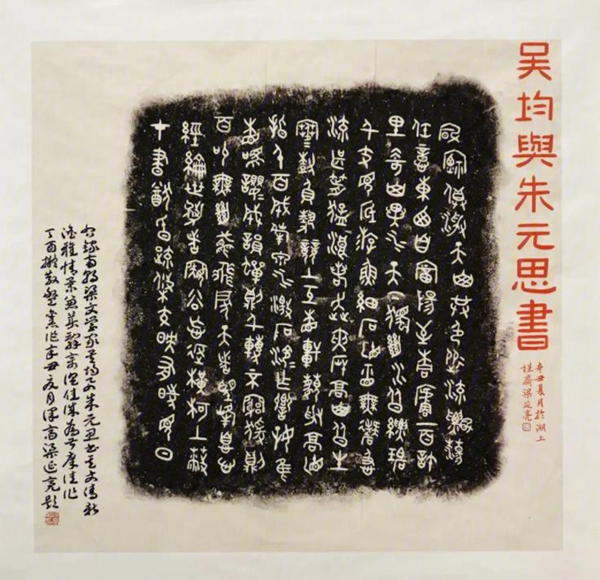 吳均與朱元思書
辛丑夏月於湖上
齋梁延亮
風煙俱淨天山共色從流飄蕩
任意東西自富陽至桐廬一百許
里奇山異水天下獨絕水皆縹碧
千丈見底游魚細石直視無礙急
湍甚箭猛浪若奔夾岸高山皆生
寒樹負勢競上互相軒邈爭高直
指千百成峰泉水激石泠泠作響好鳥
相鳴嚶嚶成韻蟬則千轉不窮猿則
百叫無絕鳶飛戾天者望峰息心
經綸世務者窺谷忘反橫柯上蔽
在晝猶昏疏條交映有時見日
南朝梁文學家吳均與朱元思書其文清新
雅情景兼美辭章
丁酉辛丑夏月齋梁延亮題